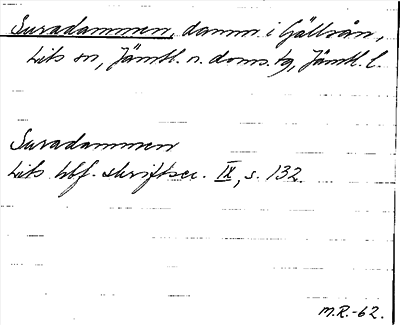 Suradammen, damm i Gällsån,
Lits sn, Jämtl. n. doms. tg, Jämtl. l.
Suradammen
Lits hbf. skriftser. IX, s. 132.
M.R.-62.